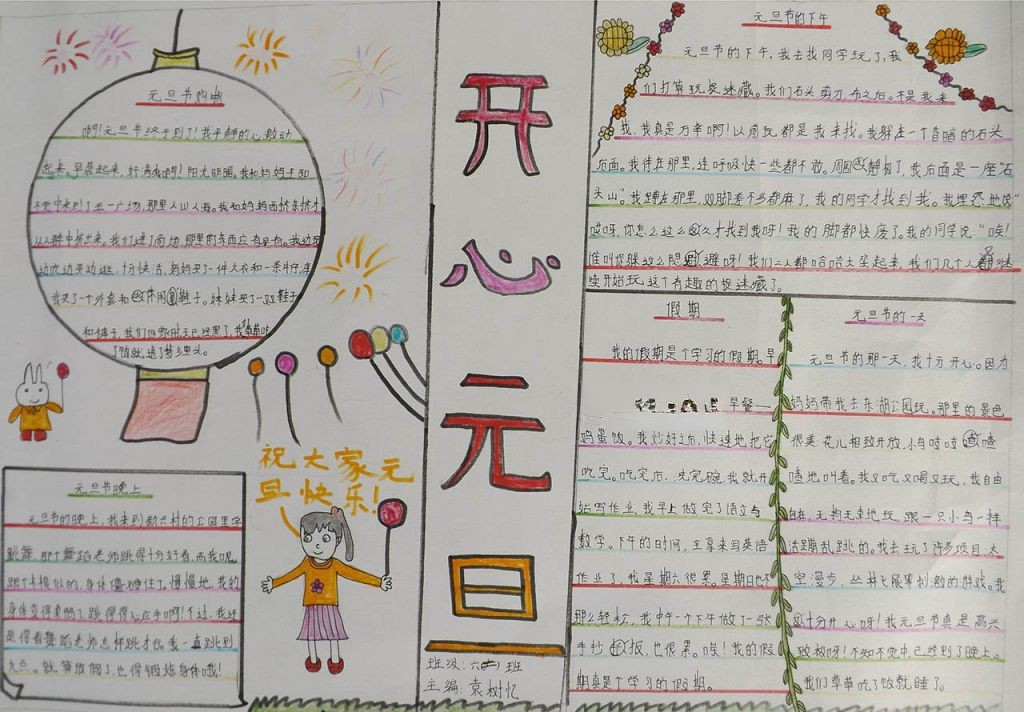 元旦节购物
啊！元旦节终于到了！我平静的心激动
起来。早晨起来，好清爽啊！阳光明媚。我和妈妈不知
不觉中来到了五一广场，那里人山人海。我和妈妈西挤东挤才
从人群中挤出来。我们进了商场，那里的东西应有尽有。我边玩
边吃边买边逛，十分快活。妈妈买了一件大衣和一条牛仔库
我买了一个外套和休闲鞋子。妹妹买了一双鞋子
和裤子，我们回家时天已经黑了，我草草吃
了饭就进了梦乡里头。
祝大家元
旦快乐！
元旦节晚上
元旦节的晚上，我来到新六村的公园里学
跳舞。那个舞蹈老师跳得十分好看，而我呢，
跟个木棍似的，身体僵硬住了。慢慢地，我的
身体变得柔韧了，跳得得心应手啊！不过，我还
是得看舞蹈老师怎样跳才行。我一直跳到
九点。就算放假了，也得锻炼身体哦！
开心元旦
班级：六(一)班
主编：袁树忆
元旦节的下午
元旦节的下午，我去找同学玩了，我
们打算玩捉迷藏。我们石头剪刀布之后。不是我来
找，我真是万幸啊！以前玩都是我来找。我躲在一个昏暗的石头
后面。我待在那里，连呼吸快一些都不敢。周围静极了，我后面是一座“石
头山”。我蹲在那里，双脚差不多都麻了，我的同学才找到我。我埋怨地说“
哎呀，你怎么这么久才找到我呀！我的脚都快废了。我的同学说：“唉！
谁叫你躲这么隐避呀！我们二人都哈哈大笑起来，我们几个人继
续开始玩这个有趣的捉迷藏了。
假期
我的假期是个学习的假期。早
早餐一
鸡蛋饭。我炒好之后，快速地把它
吃完。吃完后，洗完碗，我就开
始写作业，我早上做完了语文与
数学。下午的时间，主拿来写英语
作业了，我星期六很累。星期日也不
那么轻松，我中午一个下午做了一张
手抄报，也很累。唉！我的假
期真是个学习的假期。
元旦节的一天
元旦节的那一天，我十分开心。因为
妈妈带我去东湖公园玩。那里的景色
很美，花儿相致开放，小鸟吱吱喳
喳地叫着。我又吃又喝又玩，我自由
自在，无拘无束地玩，跟一只小鸟一样
活蹦乱跳的。我去玩了许多项目：太
空漫步，丛林飞展等刺激的游戏。我
十分开心呀！我元旦节真是高兴
致极呀！不知不觉中已经到了晚上。
我们草草吃了饭就睡了。